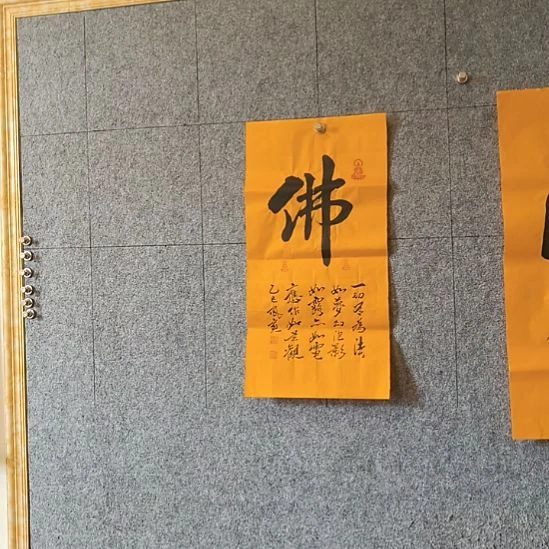 佛
一切有為法
如夢幻泡影
如露亦如電
應作如是觀
乙巳